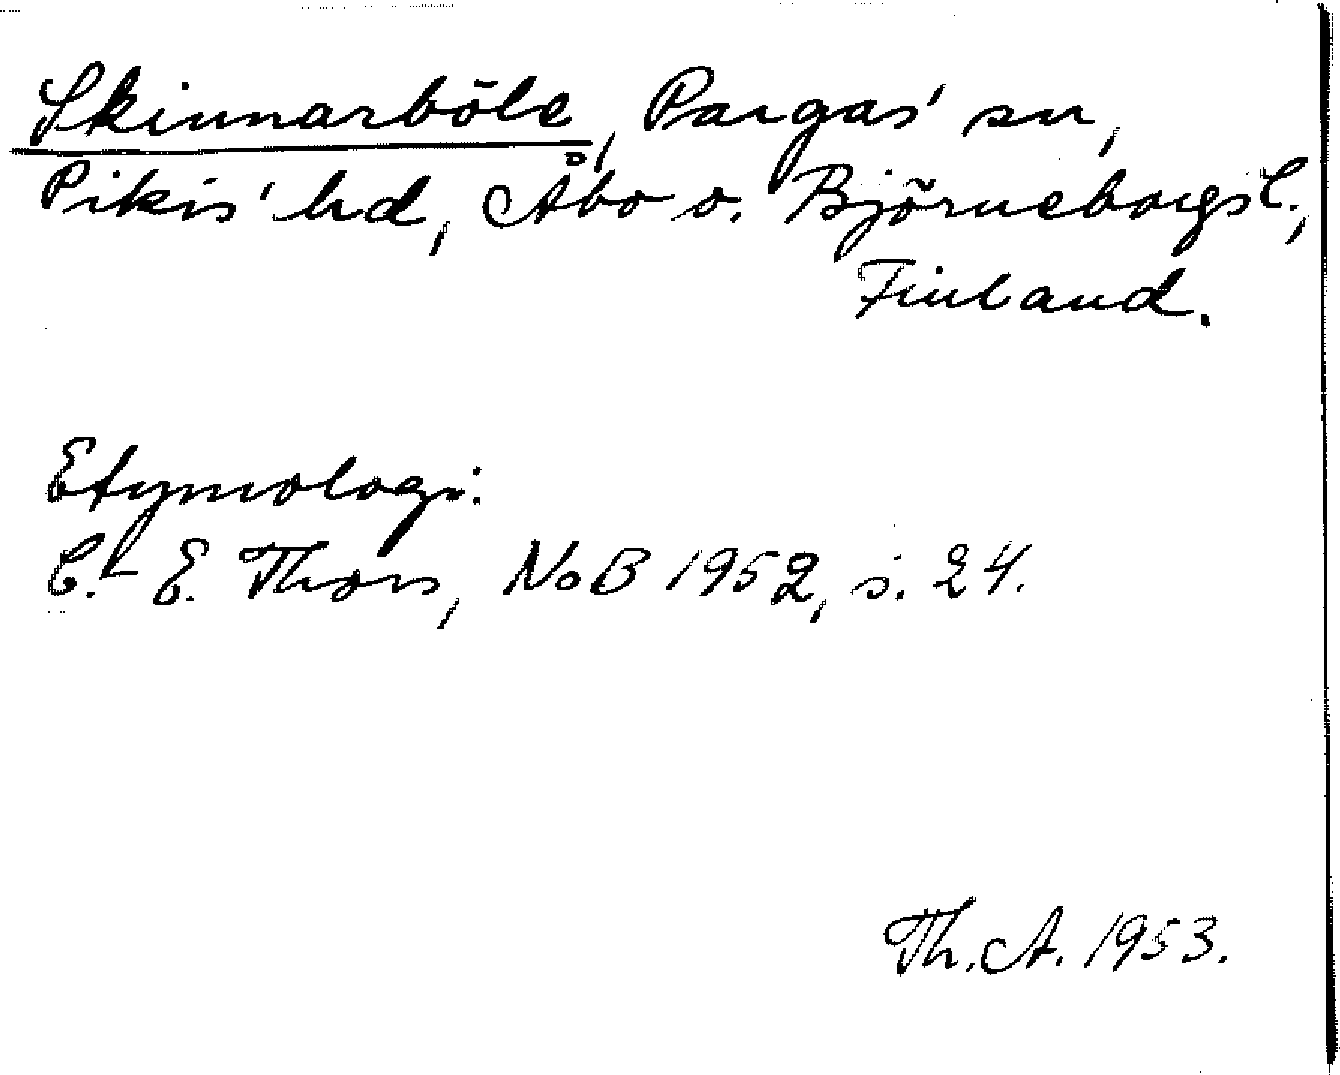 Skinnarböle, Pargas' sn,
Pikis' hd, Åbo o. Björneborgs l.,
Finland.
Etymologi:
C.-E. Thors, NoB 1952, s. 24.
Th. A. 1953.